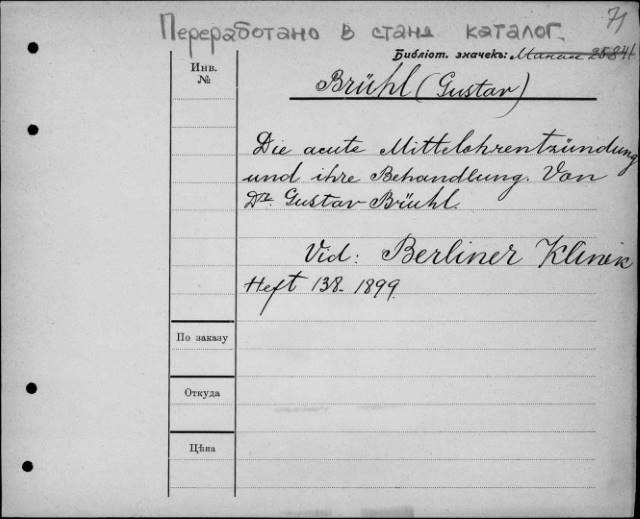 71
Переработано в станд каталог.
Библіот. значекъ:
Инв.
№
Brühl (Gustav)
Die acute Mittelohrentzündung
und ihre Behandlung. Von
Dr. Gustav Brühl.
Vid: Berliner Klinik
Heft 138. 1899.
По заказу
Откуда
Цѣна